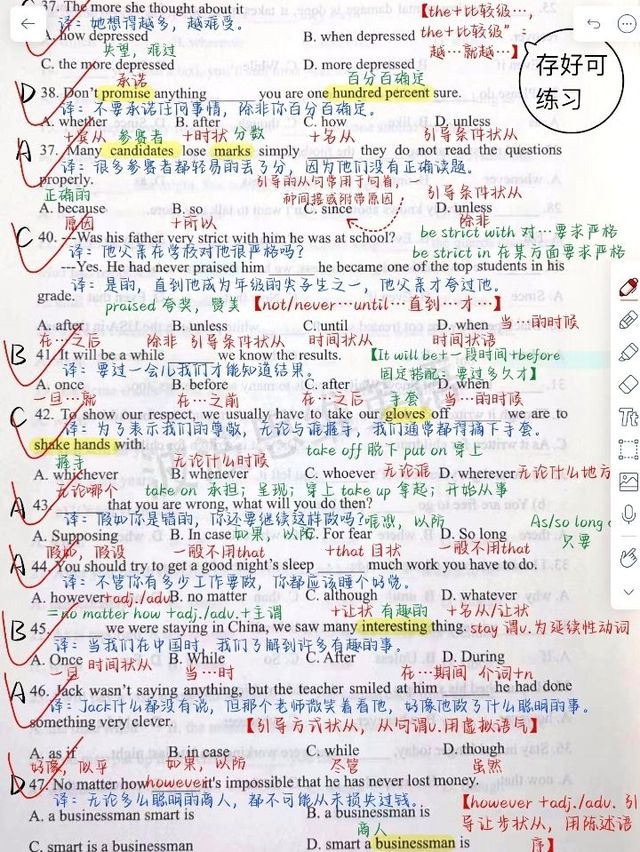 37. The more she thought about it
【the+比较级…,
译: 她想得越多, 越难受。
A. how depressed
B. when depressed
the+比较级":
失望, 难过
越…就越…】
C. the more depressed
D. more depressed
存好可
练习
承诺
百分百确定
D
38. Don't promise anything ______ you are one hundred percent sure.
译: 不要承诺任何事情, 除非你百分百确定。
A. whether
B. after
C. how
D. unless
参赛者
+时状
分数
+名从
引导条件状从
A
37. Many candidates lose marks simply ______ they do not read the questions
译: 很多参赛者都轻易的丢了分, 因为他们没有正确读题。
properly.
正确的
引导的从句常用于句首, 一
种间接或附带原因
引导条件状从
A. because
B. so
C. since
D. unless
原因
+所以
除非
C
40. —Was his father very strict with him he was at school?
be strict with 对…要求严格
译: 他父亲在学校对他很严格吗?
be strict in 在某方面要求严格
—Yes. He had never praised him ______ he became one of the top students in his
译: 是的, 直到他成为年级的尖子生之一, 他父亲才夸过他。
grade.
praised 夸奖, 赞美
【not/never…until…直到…才…】
A. after
B. unless
C. until
D. when
当…的时候
在…之后
除非 引导条件状从
时间状从
时间状语
B
41. It will be a while ______ we know the results.
【It will be+一段时间+before
译: 要过一会儿我们才能知道结果。
固定搭配: 要过多久才】
A. once
B. before
C. after
D. when
一旦…就
在…之前
在…之后
手套
当…的时候
C
42. To show our respect, we usually have to take our gloves off ______ we are to
译: 为了表示我们的尊敬, 无论与谁握手, 我们通常都得摘下手套。
shake hands with.
take off 脱下 put on 穿上
握手
无论什么时候
A. whichever
B. whenever
C. whoever 无论谁
D. wherever 无论什么地方
无论哪个
take on 承担; 呈现; 穿上 take up 拿起; 开始从事
A
43. ______ that you are wrong, what will you do then?
译: 假如你是错的, 你还要继续这样做吗?
以防
As/so long
只要
A. Supposing
B. In case 如果, 以防
C. For fear
D. So long
假如, 假设
一般不用that
+that 目状
一般不用that
A
44. You should try to get a good night's sleep ______ much work you have to do.
译: 不管你有多少工作要做, 你都应该睡个好觉。
A. however +adj./adv.
B. no matter
C. although
D. whatever
=no matter how +adj./adv.+主谓
+让状
有趣的
+名从/让状
B
45. ______ we were staying in China, we saw many interesting thing.
stay 谓v.为延续性动词
译: 当我们在中国时, 我们了解到许多有趣的事。
A. Once
时间状从
B. While
C. After
D. During
一旦
当…时
在…期间 介词+n
A
46. Jack wasn't saying anything, but the teacher smiled at him ______ he had done
译: Jack什么都没有说, 但那个老师微笑着看他, 好像他做了什么聪明的事。
something very clever.
【引导方式状从, 从句谓v.用虚拟语气】
A. as if
B. in case
C. while
D. though
好像, 似乎
如果, 以防
尽管
虽然
D
47. No matter how
however
it's impossible that he has never lost money.
译: 无论多么聪明的商人, 都不可能从未损失过钱。
【however +adj./adv. 引
导让步状从, 用陈述语
序】
A. a businessman smart is
B. a businessman is
商人
C. smart is a businessman
D. smart a businessman is